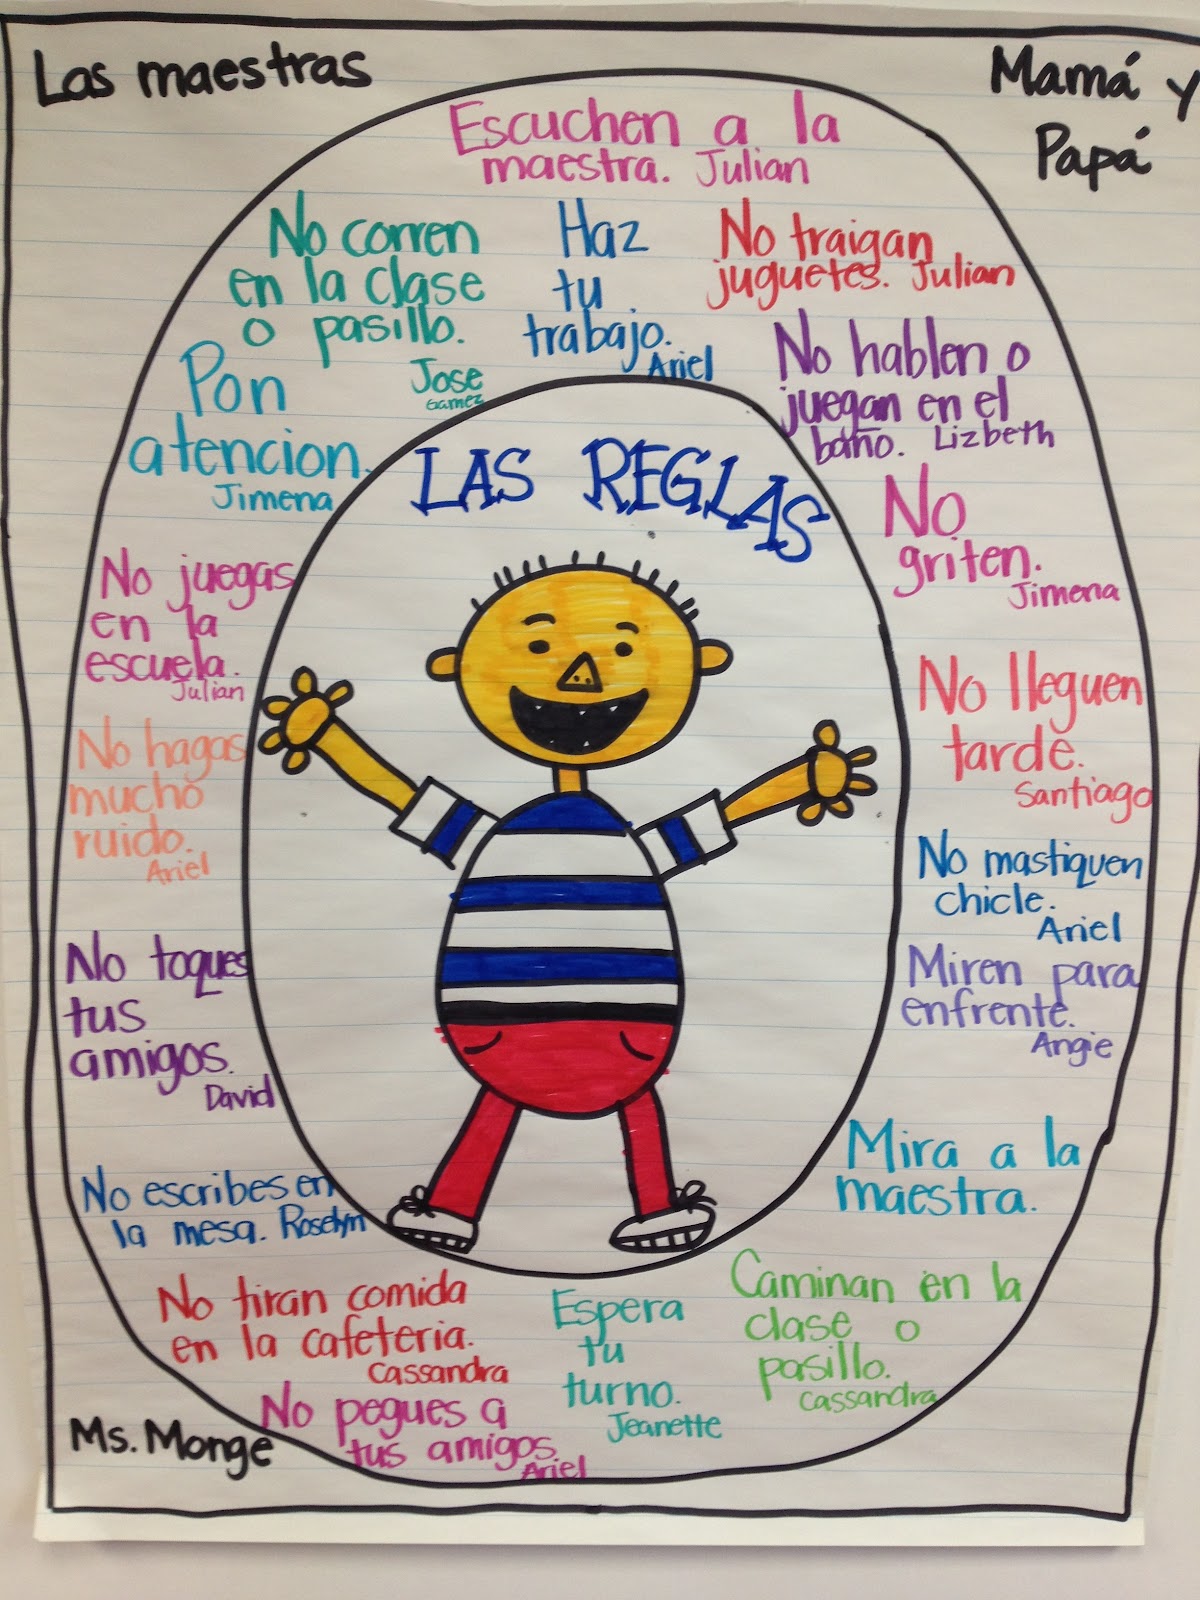 Las maestras
Mamá y
Papá
Escuchen a la
maestra. Julian
No corren
en la clase
o pasillo.
Jose
Gamez
Haz
tu
trabajo.
Ariel
No traigan
juguetes. Julian
Pon
atencion.
Jimena
No hablen o
juegan en el
baño. Lizbeth
LAS REGLAS
No
griten.
Jimena
No juegas
en la
escuela.
Julian
No lleguen
tarde.
Santiago
No hagas
mucho
ruido.
Ariel
No mastiquen
chicle.
Ariel
No toques
tus
amigos.
David
Miren para
enfrente.
Angie
Mira a la
maestra.
No escribes en
la mesa. Roselyn
No tiran comida
en la cafeteria.
Cassandra
Espera
tu
turno.
Jeanette
Caminan en la
clase o
pasillo.
Cassandra
No pegues a
tus amigos.
Ariel
Ms. Monge